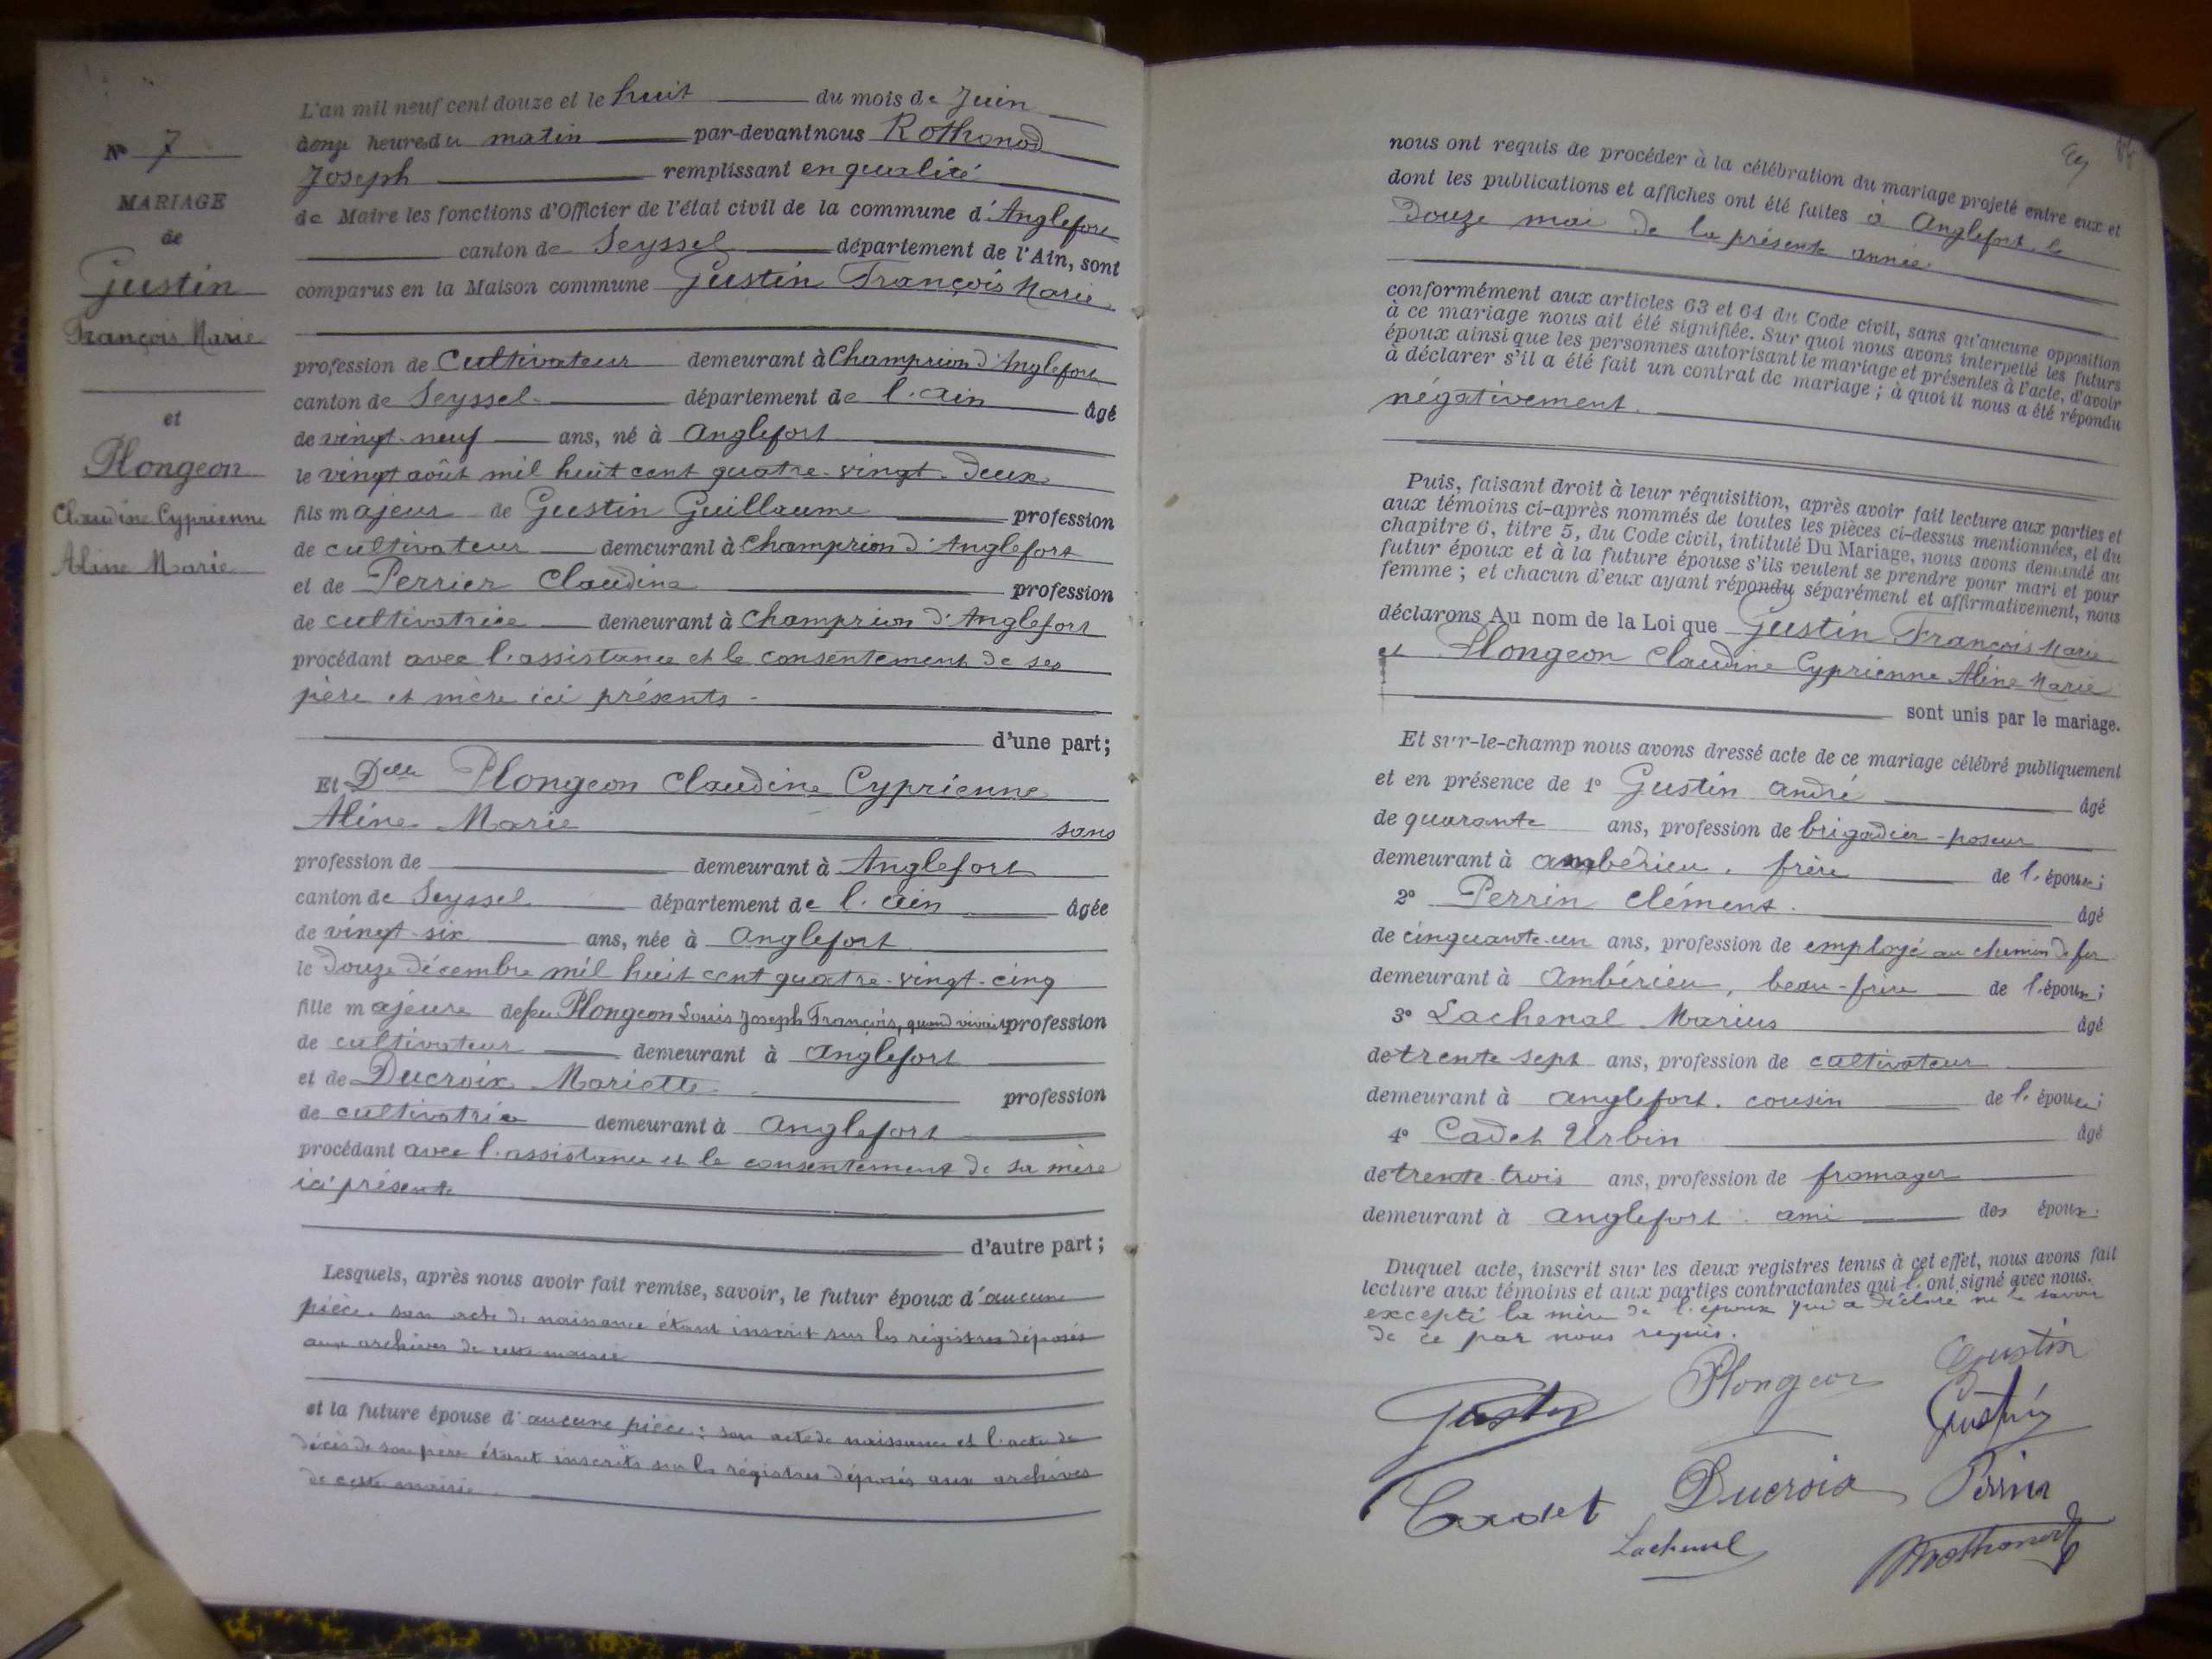 N° 7
MARIAGE
de
Gustin
François Marie
et
Plongeon
Claudine Cyprienne
Aline Marie
L'an mil neuf cent douze et le huit du mois de Juin
à onze heures du matin par-devant nous Rothonod
Joseph remplissant en qualité
de Maire les fonctions d'Officier de l'état civil de la commune d'Anglefort
canton de Seyssel département de l'Ain, sont
comparus en la Maison commune Gustin François Marie
profession de Cultivateur demeurant à Champrion d'Anglefort
canton de Seyssel département de l'Ain âgé
de vingt-neuf ans, né à Anglefort
le vingt août mil huit cent quatre-vingt-deux
fils majeur de Gustin Guillaume profession
de cultivateur demeurant à Champrion d'Anglefort
et de Perrier Claudine profession
de cultivatrice demeurant à Champrion d'Anglefort
procédant avec l'assistance et le consentement de ses
père et mère ici présents
d'une part;
Et Delle Plongeon Claudine Cyprienne
Aline Marie sans
profession de demeurant à Anglefort
canton de Seyssel département de l'Ain âgée
de vingt-six ans, née à Anglefort
le douze décembre mil huit cent quatre-vingt-cinq
fille majeure de feu Plongeon Louis Joseph François, quand vivait profession
de cultivateur demeurant à Anglefort
et de Ducroix Mariette profession
de cultivatrice demeurant à Anglefort
procédant avec l'assistance et le consentement de sa mère
ici présente
d'autre part;
Lesquels, après nous avoir fait remise, savoir, le futur époux d'aucune
pièce, son acte de naissance étant inscrit sur les régistres déposés
aux archives de cette mairie
et la future épouse d'aucune pièce; son acte de naissance et l'acte de
décès de son père étant inscrits sur les régistres déposés aux archives
de cette mairie.
49
nous ont requis de procéder à la célébration du mariage projeté entre eux et
dont les publications et affiches ont été faites à Anglefort le
douze mai de la présente année
conformément aux articles 63 et 64 du Code civil, sans qu'aucune opposition
à ce mariage nous ait été signifiée. Sur quoi nous avons interpellé les futurs
époux ainsi que les personnes autorisant le mariage et présentes à l'acte, d'avoir
à déclarer s'il a été fait un contrat de mariage; à quoi il nous a été répondu
négativement.
Puis, faisant droit à leur réquisition, après avoir fait lecture aux parties et
aux témoins ci-après nommés de toutes les pièces ci-dessus mentionnées, et du
chapitre 6, titre 5, du Code civil, intitulé Du Mariage, nous avons demandé au
futur époux et à la future épouse s'ils veulent se prendre pour mari et pour
femme; et chacun d'eux ayant répondu séparément et affirmativement, nous
déclarons Au nom de la Loi que Gustin François Marie
et Plongeon Claudine Cyprienne Aline Marie
sont unis par le mariage.
Et sur-le-champ nous avons dressé acte de ce mariage célébré publiquement
et en présence de 1° Gustin André âgé
de quarante ans, profession de brigadier-poseur
demeurant à Ambérieu, frère de l'époux;
2° Perrin Clément. âgé
de cinquante-un ans, profession de employé au chemin de fer
demeurant à Ambérieu, beau-frère de l'époux;
3° Lachenal Marius âgé
de trente sept ans, profession de cultivateur
demeurant à Anglefort. cousin de l'épouse;
4° Cadet Urbin âgé
de trente-trois ans, profession de fromager
demeurant à Anglefort. ami des époux.
Duquel acte, inscrit sur les deux registres tenus à cet effet, nous avons fait
lecture aux témoins et aux parties contractantes qui l'ont signé avec nous.
excepté la mère de l'époux qui a déclaré ne le savoir
de ce par nous requis.
Gustin Plongeon Gustin
Gustin
Cadet Ducroix Perrin
Lachenal Rothonod